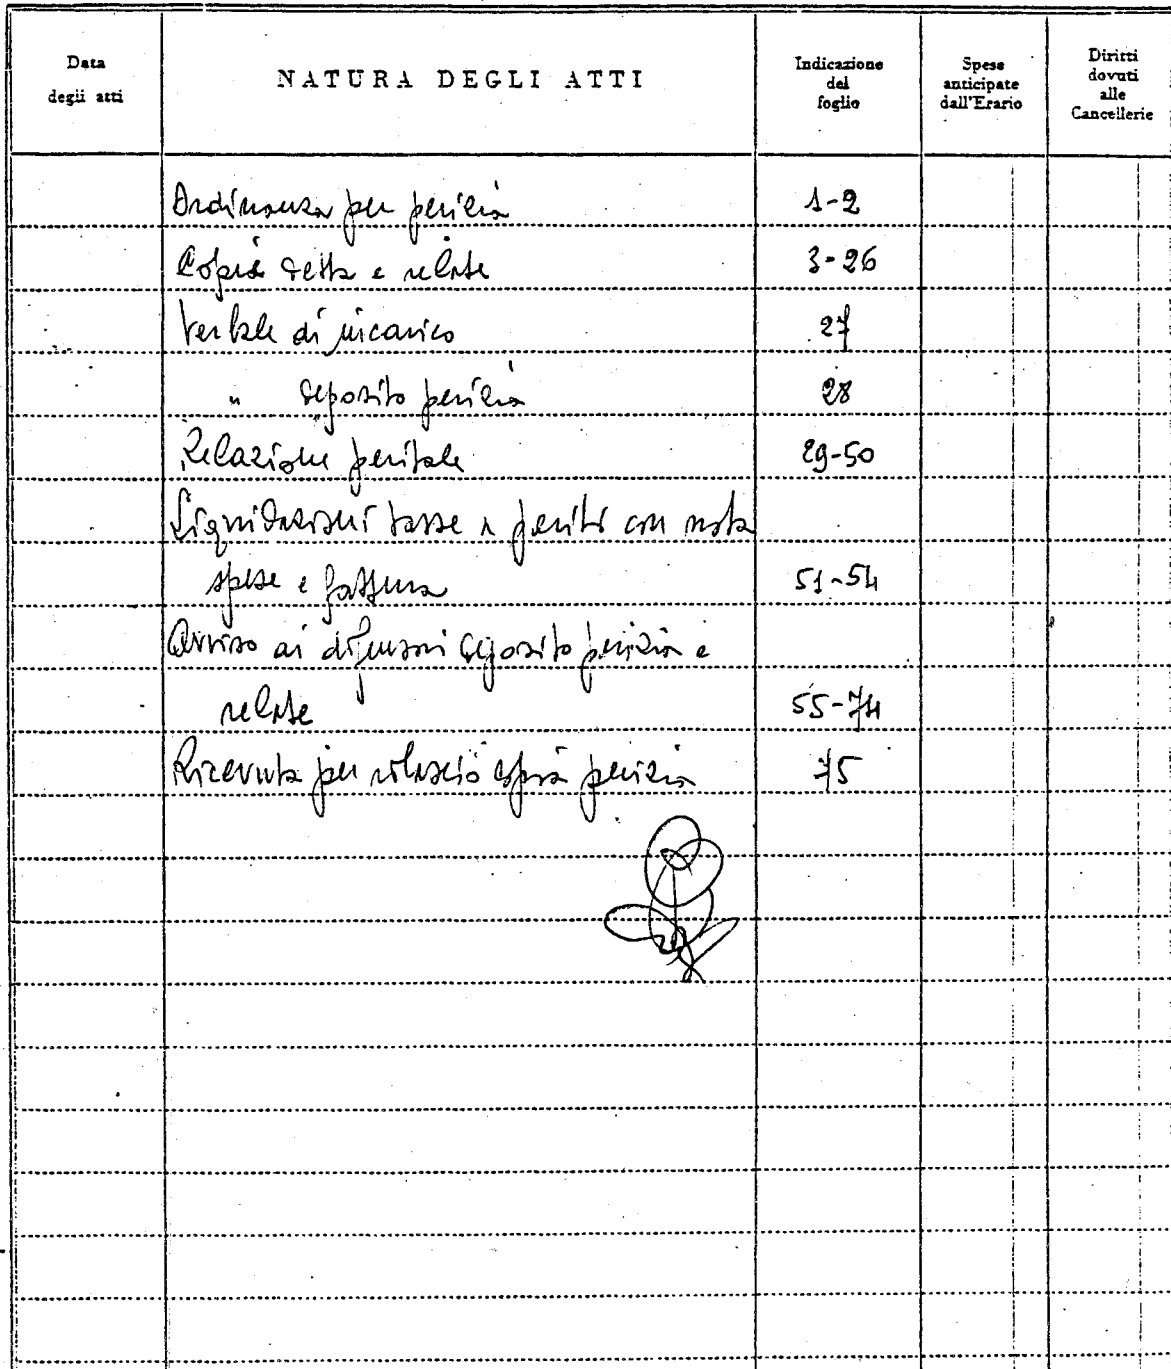 Data
degli atti
NATURA DEGLI ATTI
Indicazione
del
foglio
Spese
anticipate
dall'Erario
Diritti
dovuti
alle
Cancellerie
Ordinanza per perizia 1-2
Copia detta e relate 3-26
Verbale di incarico 27
" deposito perizia 28
Relazione peritale 29-50
Liquidazioni tasse a periti con nota
spese e fattura 51-54
Avviso ai difensori deposito perizia e
relate 55-74
Ricevuta per rilascio copia perizia 75